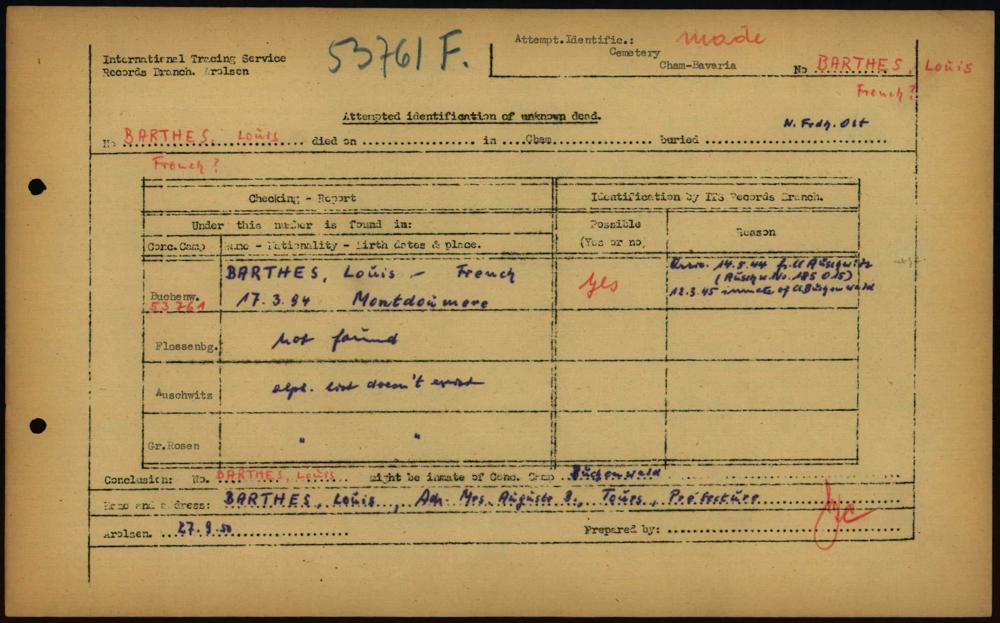 53761 F.
International Tracing Service
Records Branch. Arolsen
Attempt.Identific.: made
Cemetery
Cham-Bavaria
No BARTHES, Louis
French?
Attempted identification of unknown dead.
N. Frdh. Ost
No BARTHES, Louis died on .......... in ...Cham.......... buried ..........
French?
Checking - Report
Identification by ITS Records Branch.
Under this number is found in:
Possible
(Yes or no)
Reason
Conc.Camp
Name - Nationality - Birth dates & place.
Buchenw.
53761
BARTHES, Louis - French
17.3.94 Montdoumerc
yes
14.5.44 Auschwitz
(Auschw. No. 185015)
12.3.45 inmate of Buchenwald
Flossenbg.
not found
Auschwitz
alph. list doesn't exist
Gr.Rosen
" "
Conclusion: No. BARTHES, Louis might be inmate of Conc. Camp Buchenwald
Name and address: BARTHES, Louis, Adr. Mrs. Auguste B., Tours, Préfecture
Arolsen. 27.9.50
Prepared by: ..........